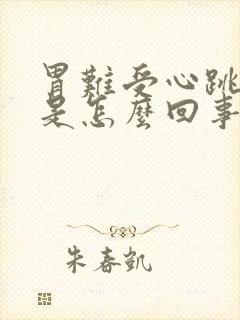 胃難受心跳
是怎麼回事
朱春凱